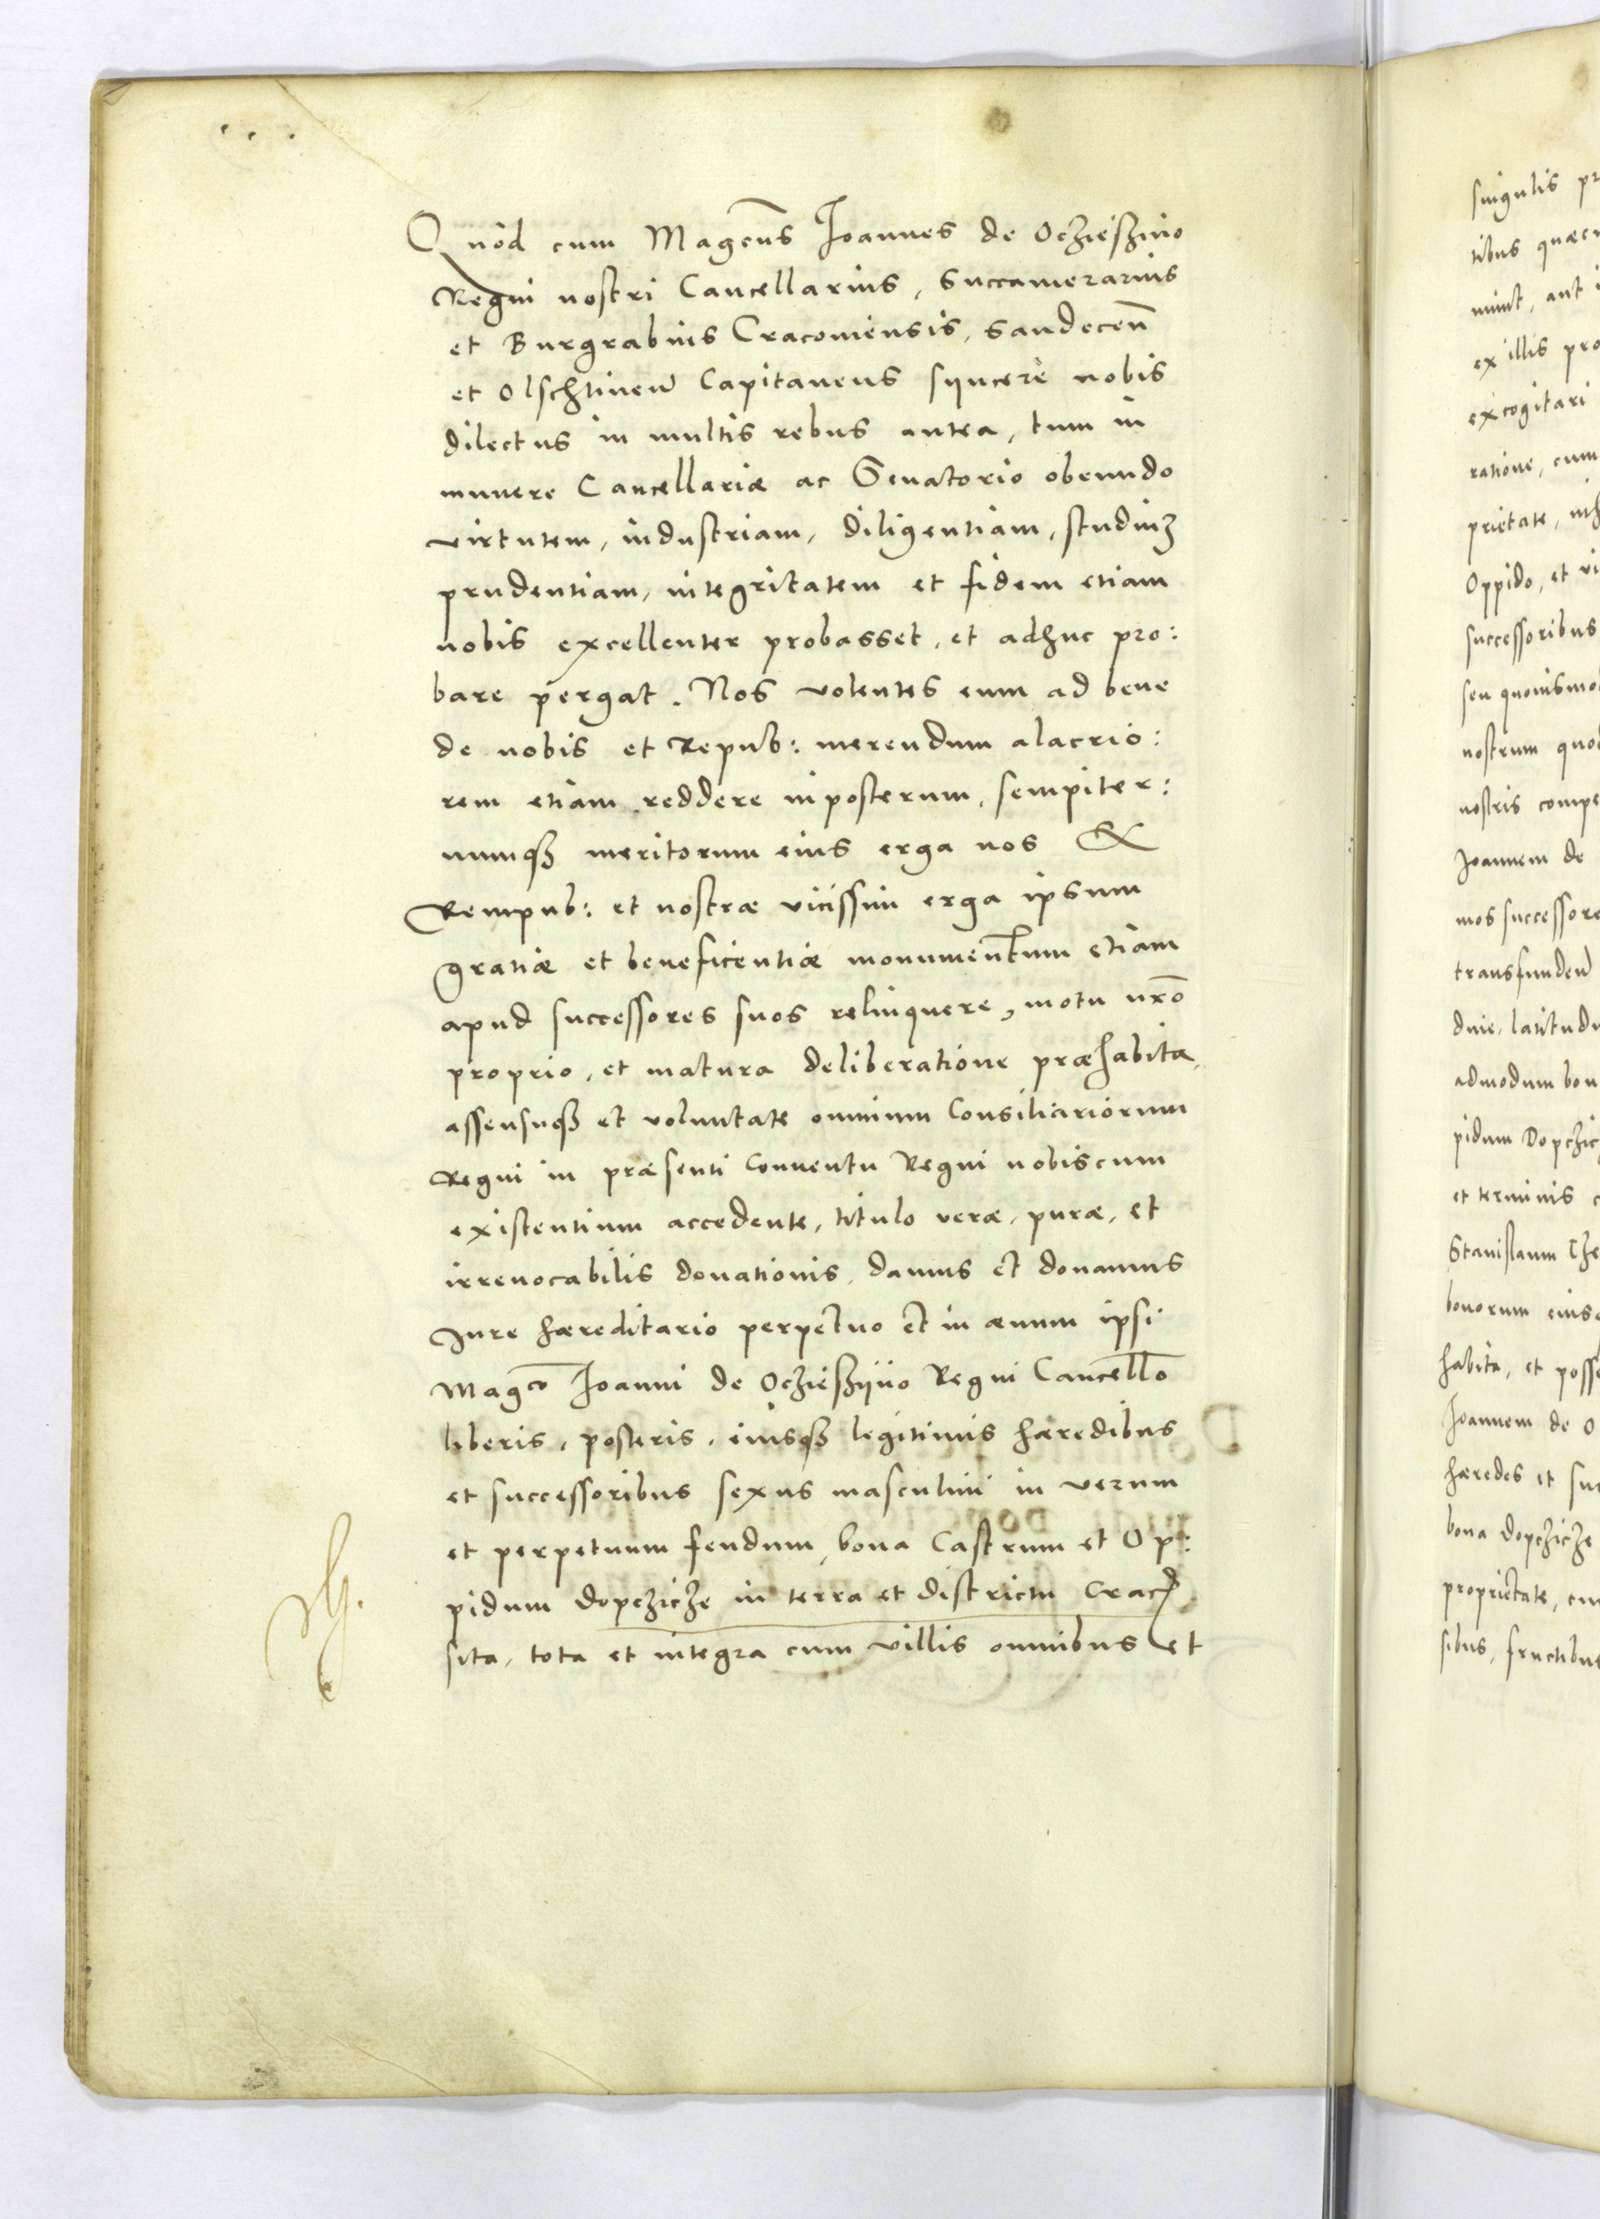 Quòd cum Magcus Joannes de Oczieszino
Regni nostri Cancellarius, Succamerarius
et Burgrabius Cracoviensis, Sandeceñ
et Olschtineñ Capitaneus syncerè nobis
dilectus in multis rebus antea, tum in
munere Cancellariæ ac Senatorio obeundo
virtutem, industriam, diligentiam, studiuʒ
prudentiam, integritatem et fidem etiam
nobis excellenter probasset, et adhuc pro:
bare pergat. Nos volentes eum ad bene
de nobis et Repub: merendum alacrio:
rem etiam reddere inposterum, sempiter:
numqʒ meritorum eius erga nos &
Rempub: et nostræ vicissim erga ipsum
gratiæ et beneficentiæ monumentum etiam
apud successores suos relinquere, motu nr̃o
proprio, et matura deliberatione præhabita,
assensuqʒ et voluntate omnium Consiliariorum
Regni in præsenti Conventu Regni nobiscum
existentium accedente, titulo veræ, puræ, et
irrevocabilis donationis, damus et donamus
Jure hæreditario perpetuo et in ævum ipsi
Magco Joanni de Oczieszyno Regni Cancello
liberis, posteris, eiusqʒ legitimis hæredibus
et successoribus sexus masculini in verum
et perpetuum feudum, bona Castrum et Op:
pidum Dopczicze in terra et districtu Crac
sita, tota et integra cum villis omnibus et
singulis
tibus
aut
ex illis
excogitari
ratione, cum
prietate,
Oppido, et
successoribus
seu
nostrum
nostris
Joannem de
mos
transfunden
latitudi
admodum
pidum Dopczic
et terminis
Stanislaum
bonorum
habita, et
Joannem de O
hæredes et
bona Dopczicze
proprietate,
sibus, fructibus